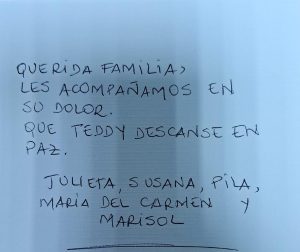 QUERIDA FAMILIA,
LES ACOMPAÑAMOS EN
SU DOLOR.
QUE TEDDY DESCANSE EN
PAZ.
JULIETA, SUSANA, PILA,
MARÍA DEL CARMEN Y
MARISOL